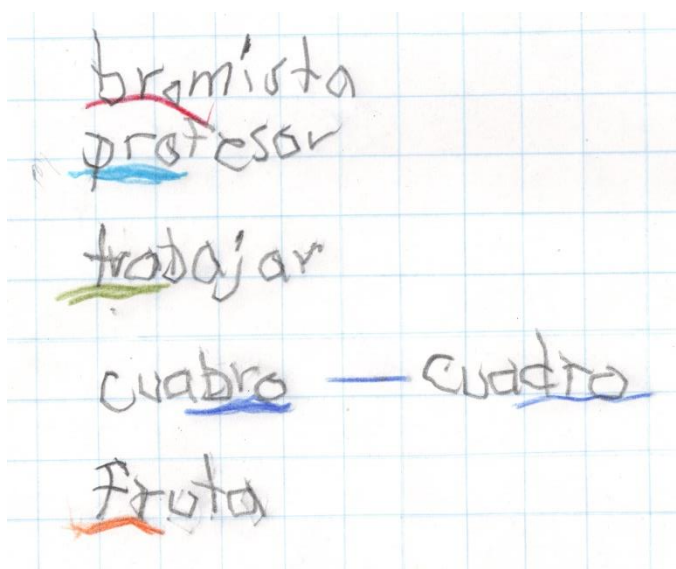 bramista
profesor
trabajar
cuabro — cuadro
fruta